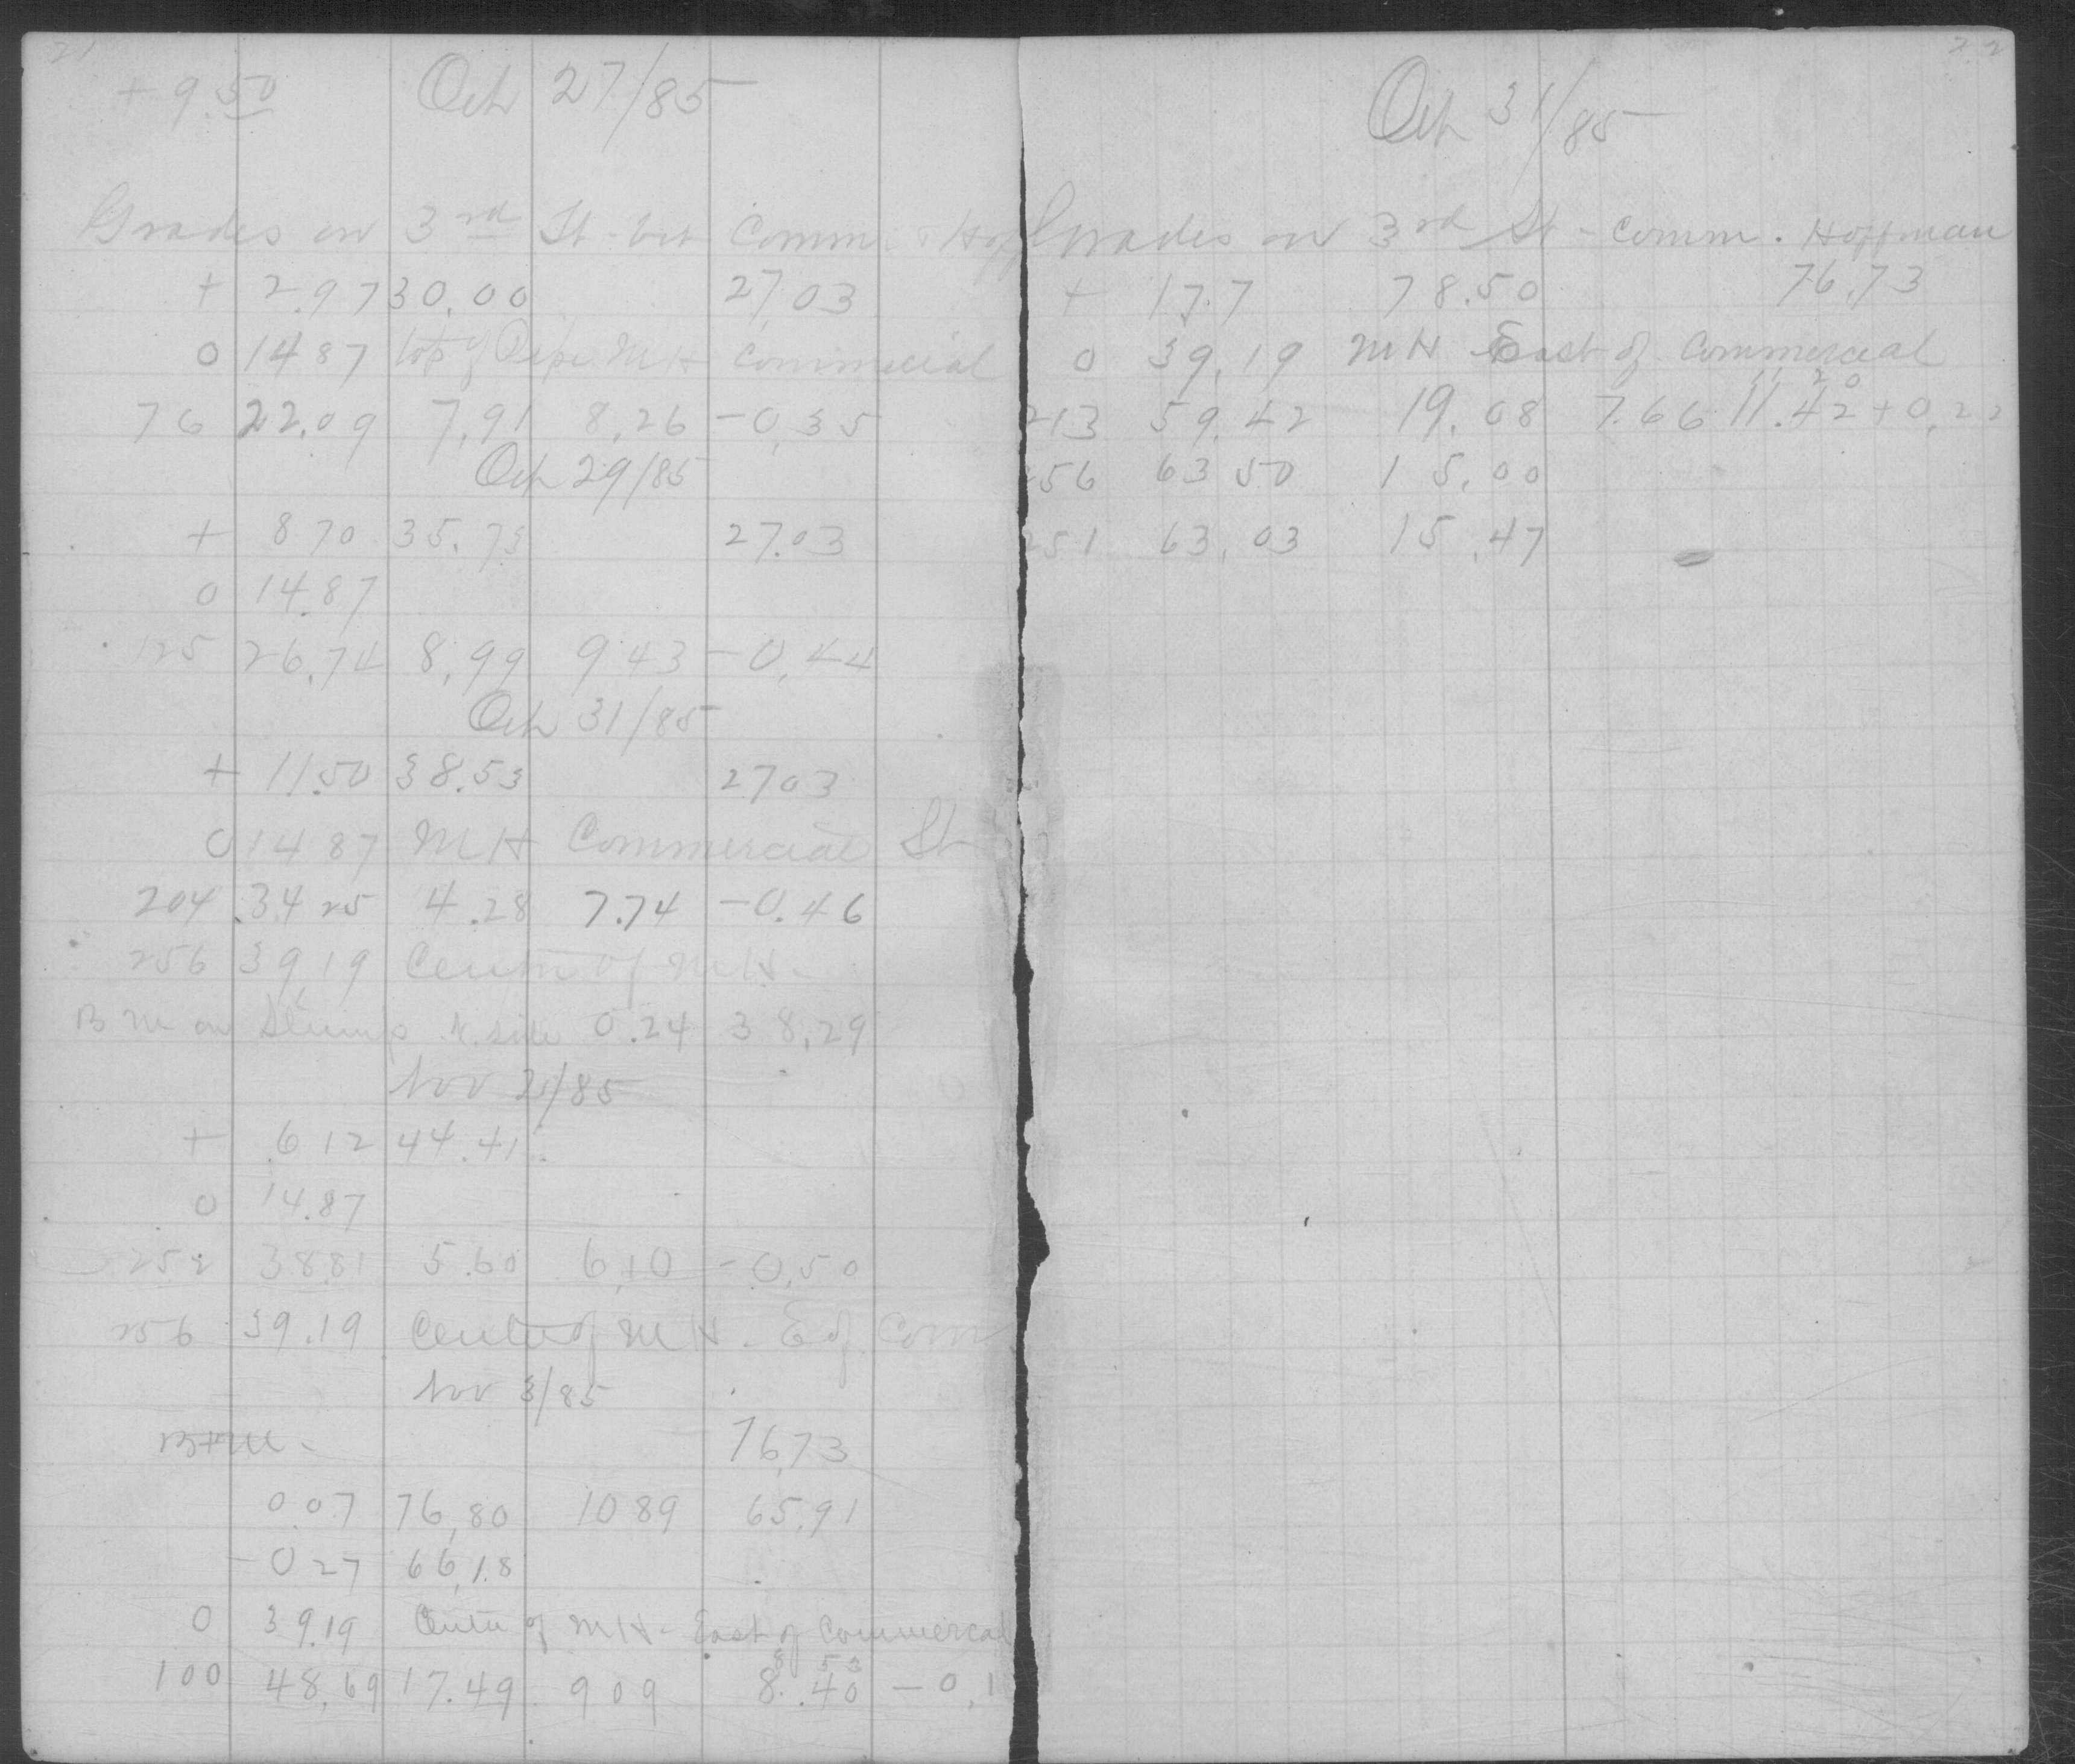 21
+ 9.50 Oct 27/85
Grades on 3rd St - bet Comm. & Hoff
+ 2.97 30.00 27.03
0 14 87 top of Pipe MH Commercial
76 22.09 7.91 8.26 -0.35
Oct 29/85
+ 8 70 35.73 27.03
0 14.87
125 26.74 8.99 9.43 -0.44
Oct 31/85
+ 11.50 38.53 27 03
0 14 87 MH Commercial St
204 34 25 4.28 7.74 -0.46
256 39.19 Center of MH-
B M on Stump N. side 0.24 38.29
Nov 2/85
+ 6 12 44.41
0 14.87
252 38.81 5.60 6.10 -0.50
256 39.19 Center of MH - E of Com
Nov 3/85
B M - 76.73
0.07 76.80 10 89 65.91
-0 27 66.18
0 39.19 Center of MH - East of Commercal
8 53
100 48.69 17.49 9 09 8.40 -0.1
22
Oct 31/85
Grades on 3rd St - Comm. Hoffman
+ 17.7 78.50 76.73
0 39.19 MH East of Commercial
11 20
213 59.42 19.08 7.66 11.42 +0.22
256 63 50 15.00
251 63.03 15.47